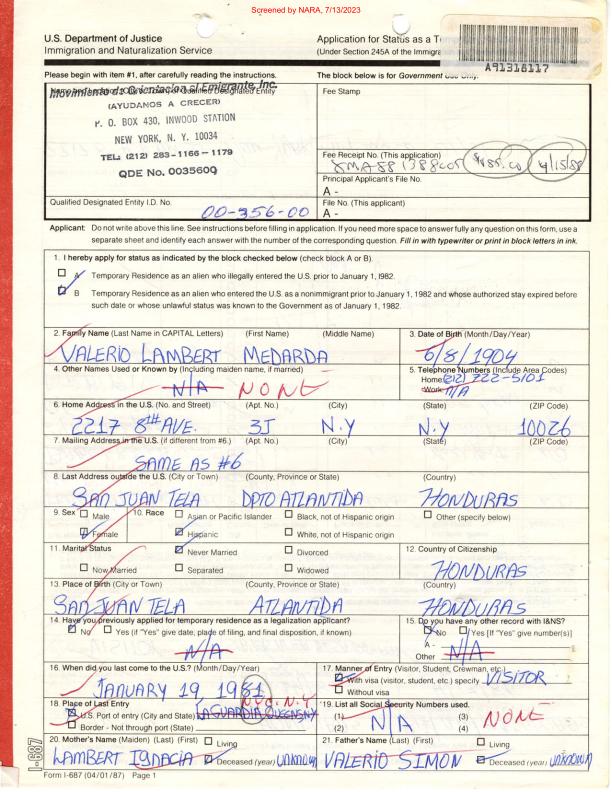 Screened by NARA, 7/13/2023
U.S. Department of Justice
Immigration and Naturalization Service
Application for Status as a T
(Under Section 245A of the Immigra
A91316117
Please begin with item #1, after carefully reading the instructions.
The block below is for Government Use Only.
Movimiento de Orientacion al Emigrante, Inc.
(AYUDANOS A CRECER)
P. O. BOX 430, INWOOD STATION
NEW YORK, N. Y. 10034
TEL: (212) 283-1166 - 1179
QDE No. 003560Q
Fee Stamp
Fee Receipt No. (This application)
XMA88 1388005 $185.00 4/15/88
Principal Applicant's File No.
A -
Qualified Designated Entity I.D. No.
00-356-00
File No. (This applicant)
A -
Applicant: Do not write above this line. See instructions before filling in application. If you need more space to answer fully any question on this form, use a
separate sheet and identify each answer with the number of the corresponding question. Fill in with typewriter or print in block letters in ink.
1. I hereby apply for status as indicated by the block checked below (check block A or B).
A Temporary Residence as an alien who illegally entered the U.S. prior to January 1, 1982.
B Temporary Residence as an alien who entered the U.S. as a nonimmigrant prior to January 1, 1982 and whose authorized stay expired before
such date or whose unlawful status was known to the Government as of January 1, 1982.
2. Family Name (Last Name in CAPITAL Letters) (First Name) (Middle Name)
VALERIO LAMBERT MEDARDA
3. Date of Birth (Month/Day/Year)
6/8/1904
4. Other Names Used or Known by (Including maiden name, if married)
N/A NONE
5. Telephone Numbers (Include Area Codes)
Home (212) 722-5101
Work: N/A
6. Home Address in the U.S. (No. and Street) (Apt. No.) (City) (State) (ZIP Code)
2217 8TH AVE. 3J N.Y N.Y 10026
7. Mailing Address in the U.S. (if different from #6.) (Apt. No.) (City) (State) (ZIP Code)
SAME AS #6
8. Last Address outside the U.S. (City or Town) (County, Province or State) (Country)
SAN JUAN TELA DPTO ATLANTIDA HONDURAS
9. Sex Male 10. Race Asian or Pacific Islander Black, not of Hispanic origin Other (specify below)
Female Hispanic White, not of Hispanic origin
11. Marital Status Never Married Divorced
Now Married Separated Widowed
12. Country of Citizenship
HONDURAS
13. Place of Birth (City or Town) (County, Province or State) (Country)
SAN JUAN TELA ATLANTIDA HONDURAS
14. Have you previously applied for temporary residence as a legalization applicant?
No Yes (if "Yes" give date, place of filing, and final disposition, if known)
N/A
15. Do you have any other record with I&NS?
No Yes [If "Yes" give number(s)]
A -
Other N/A
16. When did you last come to the U.S.? (Month/Day/Year)
JANUARY 19, 1981
17. Manner of Entry (Visitor, Student, Crewman, etc.)
With visa (visitor, student, etc.) specify VISITOR
Without visa
18. Place of Last Entry NYC. N.Y
U.S. Port of entry (City and State) LAGUARDIA QUEENS NY
Border - Not through port (State)
19. List all Social Security Numbers used.
(1) (3)
(2) (4)
N/A NONE
20. Mother's Name (Maiden) (Last) (First) Living
LAMBERT IGNACIA Deceased (year) UNKNOWN
21. Father's Name (Last) (First) Living
VALERIO SIMON Deceased (year) UNKNOWN
I-687
Form I-687 (04/01/87) Page 1